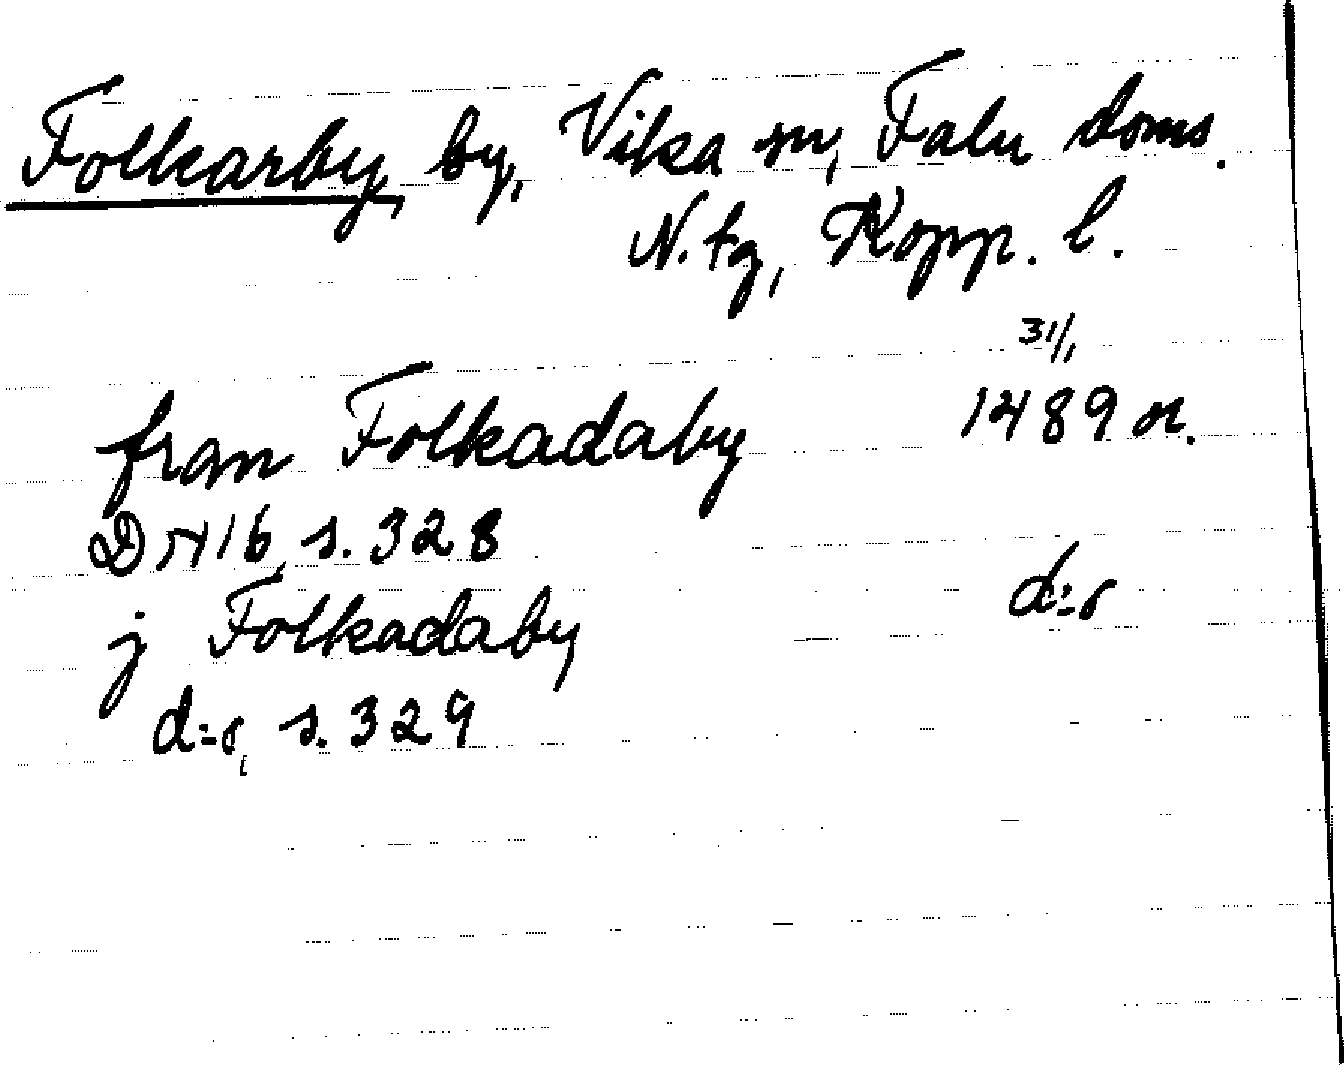 Folkarby, by, Vika sn, Falu doms.
N. tg, Kopp. l.
fran Folkadaby 31/1 1489 or.
DN 16, s. 328
j Folkadaby d:o
d:o, s. 329